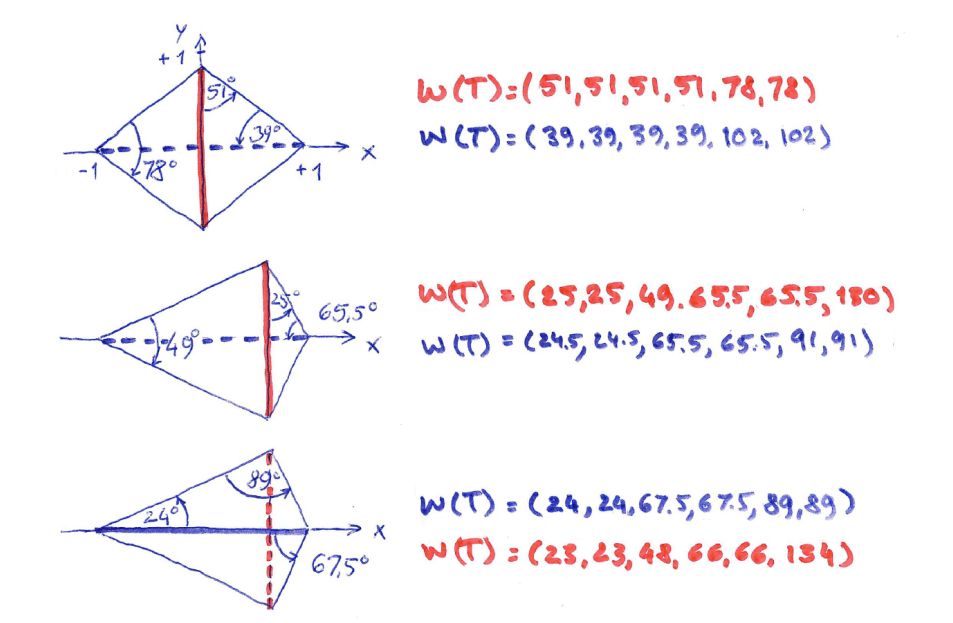 Y
+1
51°
39°
78°
-1
+1
X
W(T)=(51,51,51,51,78,78)
W(T)=(39,39,39,39,102,102)
25°
65,5°
49°
X
W(T)=(25,25,49.65.5,65.5,180)
W(T)=(24.5,24.5,65.5,65.5,91,91)
89°
24°
X
67,5°
W(T)=(24,24,67.5,67.5,89,89)
W(T)=(23,23,48,66,66,134)